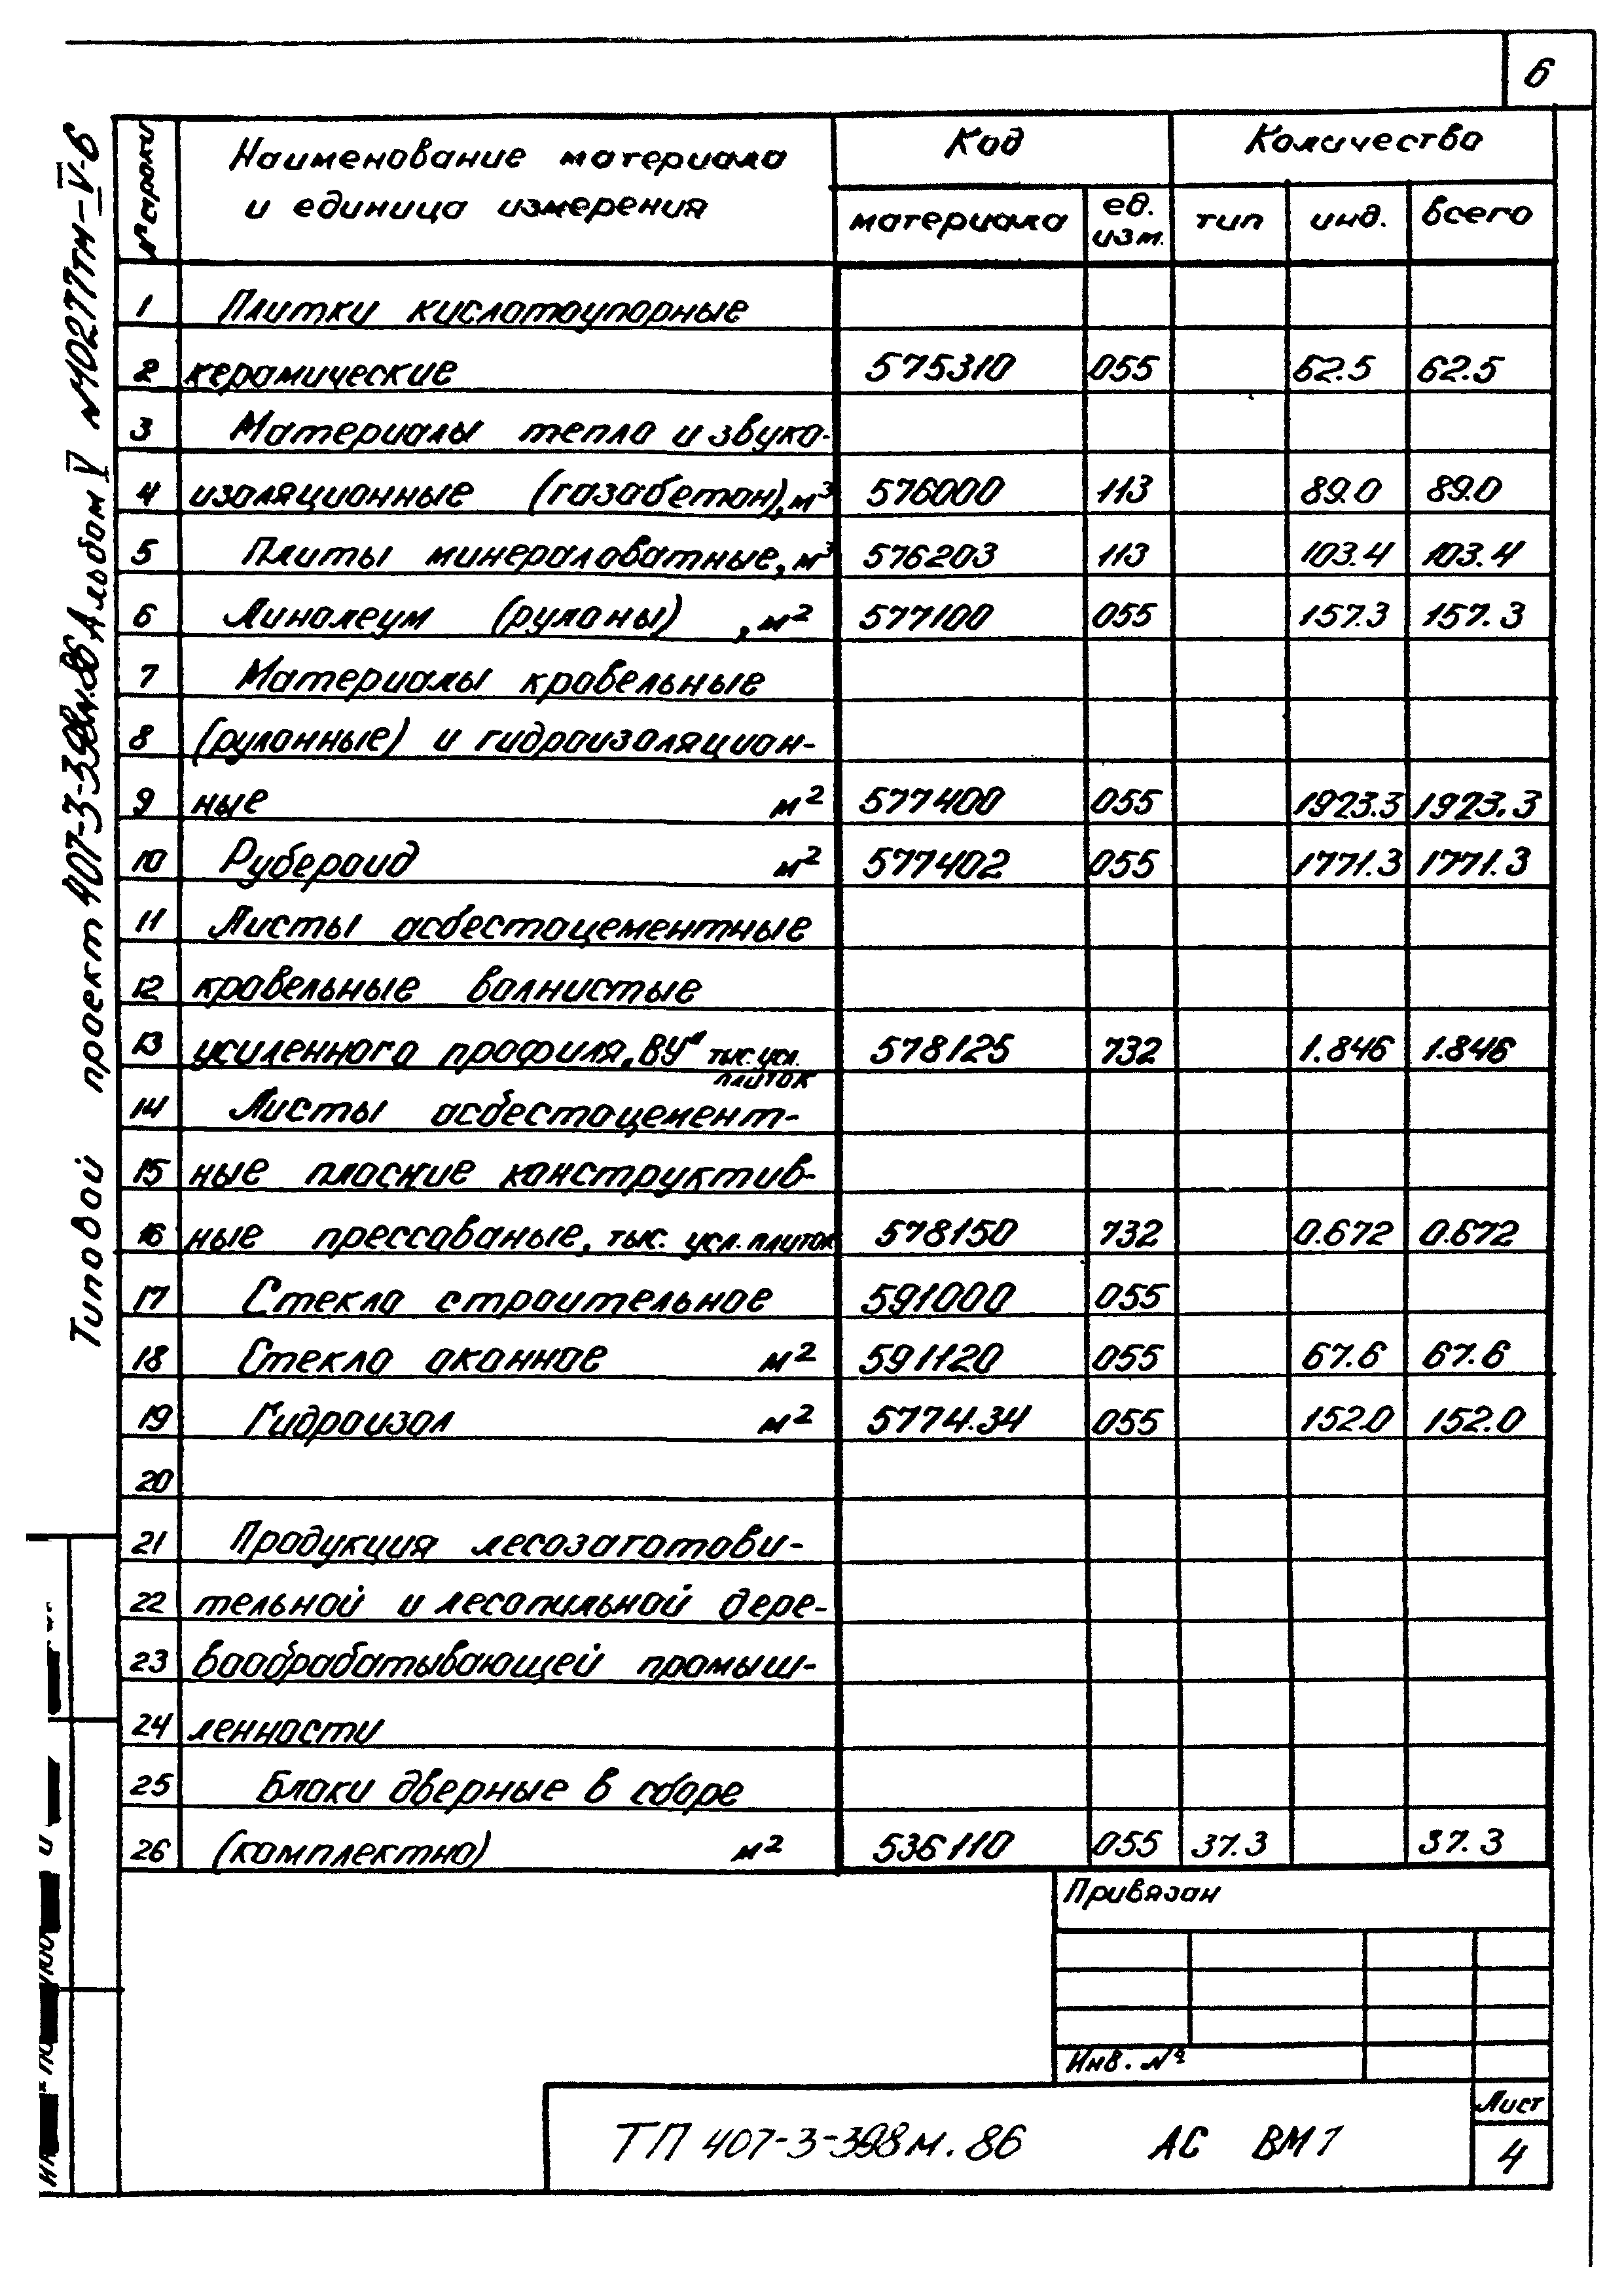 6
№ строки
Наименование материала
и единица измерения
Код
Количество
материала
ед.
изм.
тип
инд.
всего
1 Плитки кислотоупорные
2 керамические 575310 055 62.5 62.5
3 Материалы тепло и звуко-
4 изоляционные (газобетон), м³ 576000 113 89.0 89.0
5 Плиты минераловатные, м³ 576203 113 103.4 103.4
6 Линолеум (рулоны) , м² 577100 055 157.3 157.3
7 Материалы кровельные
8 (рулонные) и гидроизоляцион-
9 ные м² 577400 055 1923.3 1923.3
10 Рубероид м² 577402 055 1771.3 1771.3
11 Листы асбестоцементные
12 кровельные волнистые
13 усиленного профиля, ВУ тыс. усл. 578125 732 1.846 1.846
плиток
14 Листы асбестоцемент-
15 ные плоские конструктив-
16 ные прессованые, тыс. усл. плиток 578150 732 0.672 0.672
17 Стекло строительное 591000 055
18 Стекло оконное м² 591120 055 67.6 67.6
19 Гидроизол м² 5774.34 055 152.0 152.0
20
21 Продукция лесозаготови-
22 тельной и лесопильной дере-
23 вообрабатывающей промыш-
24 ленности
25 Блоки дверные в сборе
26 (комплектно) м² 536110 055 37.3 37.3
Типовой проект 407-3-398м.86 Альбом V №11027ТМ-V-6
Привязан
Инв. №
ТП 407-3-398м.86 АС ВМ1
Лист
4